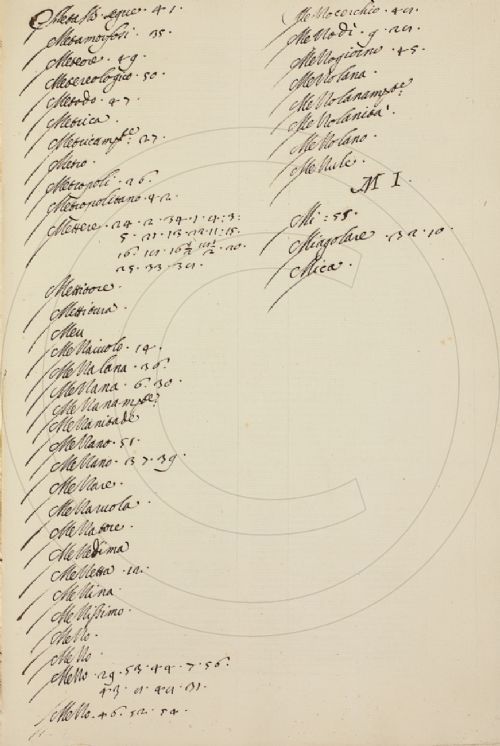 Metalli. segue. 41.
Metamorfosi. 35.
Meteore. 49.
Metereologico. 50.
Metodo. 47.
Metrica.
Metricamte: 27.
Metro.
Metropoli. 26.
Metropolitano. 42.
Mettere. 24. 2. 34. 1. 4. 3.
Mettitore.
Mettitura.
Meu
Mezzaiuolo. 14.
Mezzalana. 36.
Mezzana. 6. 30.
Mezzanamte:
Mezzanità
Mezzano. 51.
Mezzano. 37. 39.
Mezzare.
Mezzaruola.
Mezzatore.
Mezzedima
Mezzetta. 12.
Mezzina.
Mezzissimo.
Mezzo.
Mezzo.
Mezzo. 29. 53. 44. 7. 56.
Mezzo. 46. 52. 54.
Mezzocerchio. 41.
Mezzodì. 9. 21.
Mezzogiorno. 45.
Mezzolana.
Mezzolanamte:
Mezzolanità.
Mezzolano.
Mezzule.
MI.
Mi. 55.
Miagolare. 32. 10.
Mica.